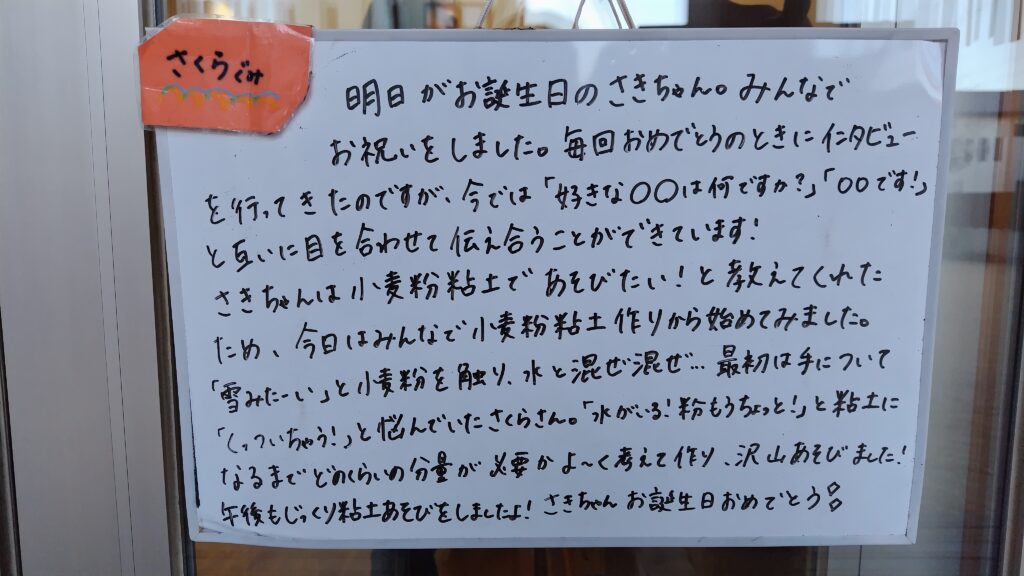 さくらぐみ
明日がお誕生日のさきちゃん。みんなで
お祝いをしました。毎回おめでとうのときにインタビュー
を行ってきたのですが、今では「好きな〇〇は何ですか?」「〇〇です!」
と互いに目を合わせて伝え合うことができています!
さきちゃんは小麦粉粘土であそびたい!と教えてくれた
ため、今日はみんなで小麦粉粘土作りから始めてみました。
「雪みたーい」と小麦粉を触り、水と混ぜ混ぜ…最初は手について
「くっついちゃう!」と悩んでいたさくらさん。「水がいる!粉もうちょっと!」と粘土に
なるまでどのくらいの分量が必要かよ〜く考えて作り、沢山あそびました!
午後もじっくり粘土あそびをしましたよ!さきちゃんお誕生日おめでとう!